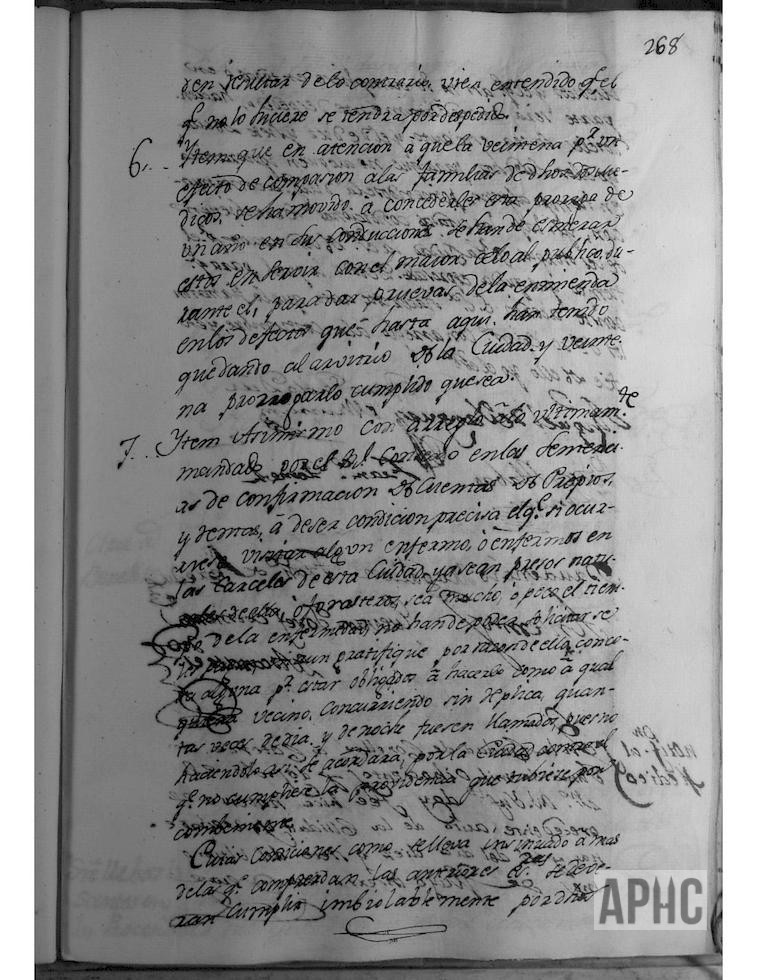 268
den resultar de lo contrario, vien entendido q.e el
q.e no lo hiciere se tendrá por despedido.
6. Ytem que en atencion á que la vecinena p.r un
efecto de compasion a las familias de dhos Me-
dicos, se ha movido á concederles esta proroga de
un año en sus conducciones se han de esmerar
estos en servir con el maior celo al publico, du-
rante el, para dar pruevas de la enmienda
en los defectos que hasta aqui han tenido
quedando al arvitrio de la Ciudad, y veinte-
na prorrogarlo cumplido que sea.
7. Ytem Asimismo con arreglo a lo ultimam.te
mandado por el R.l Consejo en las
as de confirmacion de Cuentas de Propios,
y demas, á de ser condicion precisa el q.e si ocur-
riese visitar algun enfermo, ó enfermos en
las Carceles de esta Ciudad, ya sean presos natu-
rales de ella, ó forasteros, sea mucho, ó poco el tiem-
po de la enfermedad, no han de poder solicitar se
les gratifique por razon de ella con co-
sa alguna p.r estar obligados á hacerlo como á qual
quiera vecino, concurriendo sin replica, quan-
tas veces de dia, y de noche fuesen llamados, pues no
haciendolo asi se acordará, por la Ciudad contra el
q.e no cumpliere la providencia que tubiere por
combeniente.
Cuias Condiciones como se lleva insinuado a mas
de las q.e comprendan las anteriores se deve-
ran Cumplir imbiolablemente por dhos
APHC